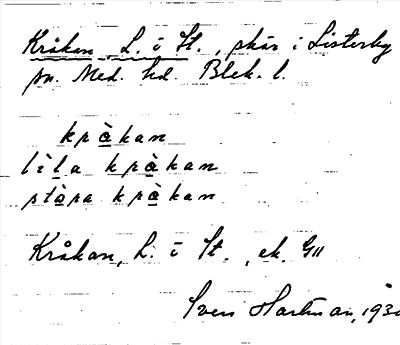 Kråkan, L. i St., skär i Listerby
sn. Med. hd. Blek. l.
kråkan
lìla kråkan
stòra kråkan
Kråkan, L. i St., ek. G11
Sven Hartman, 193